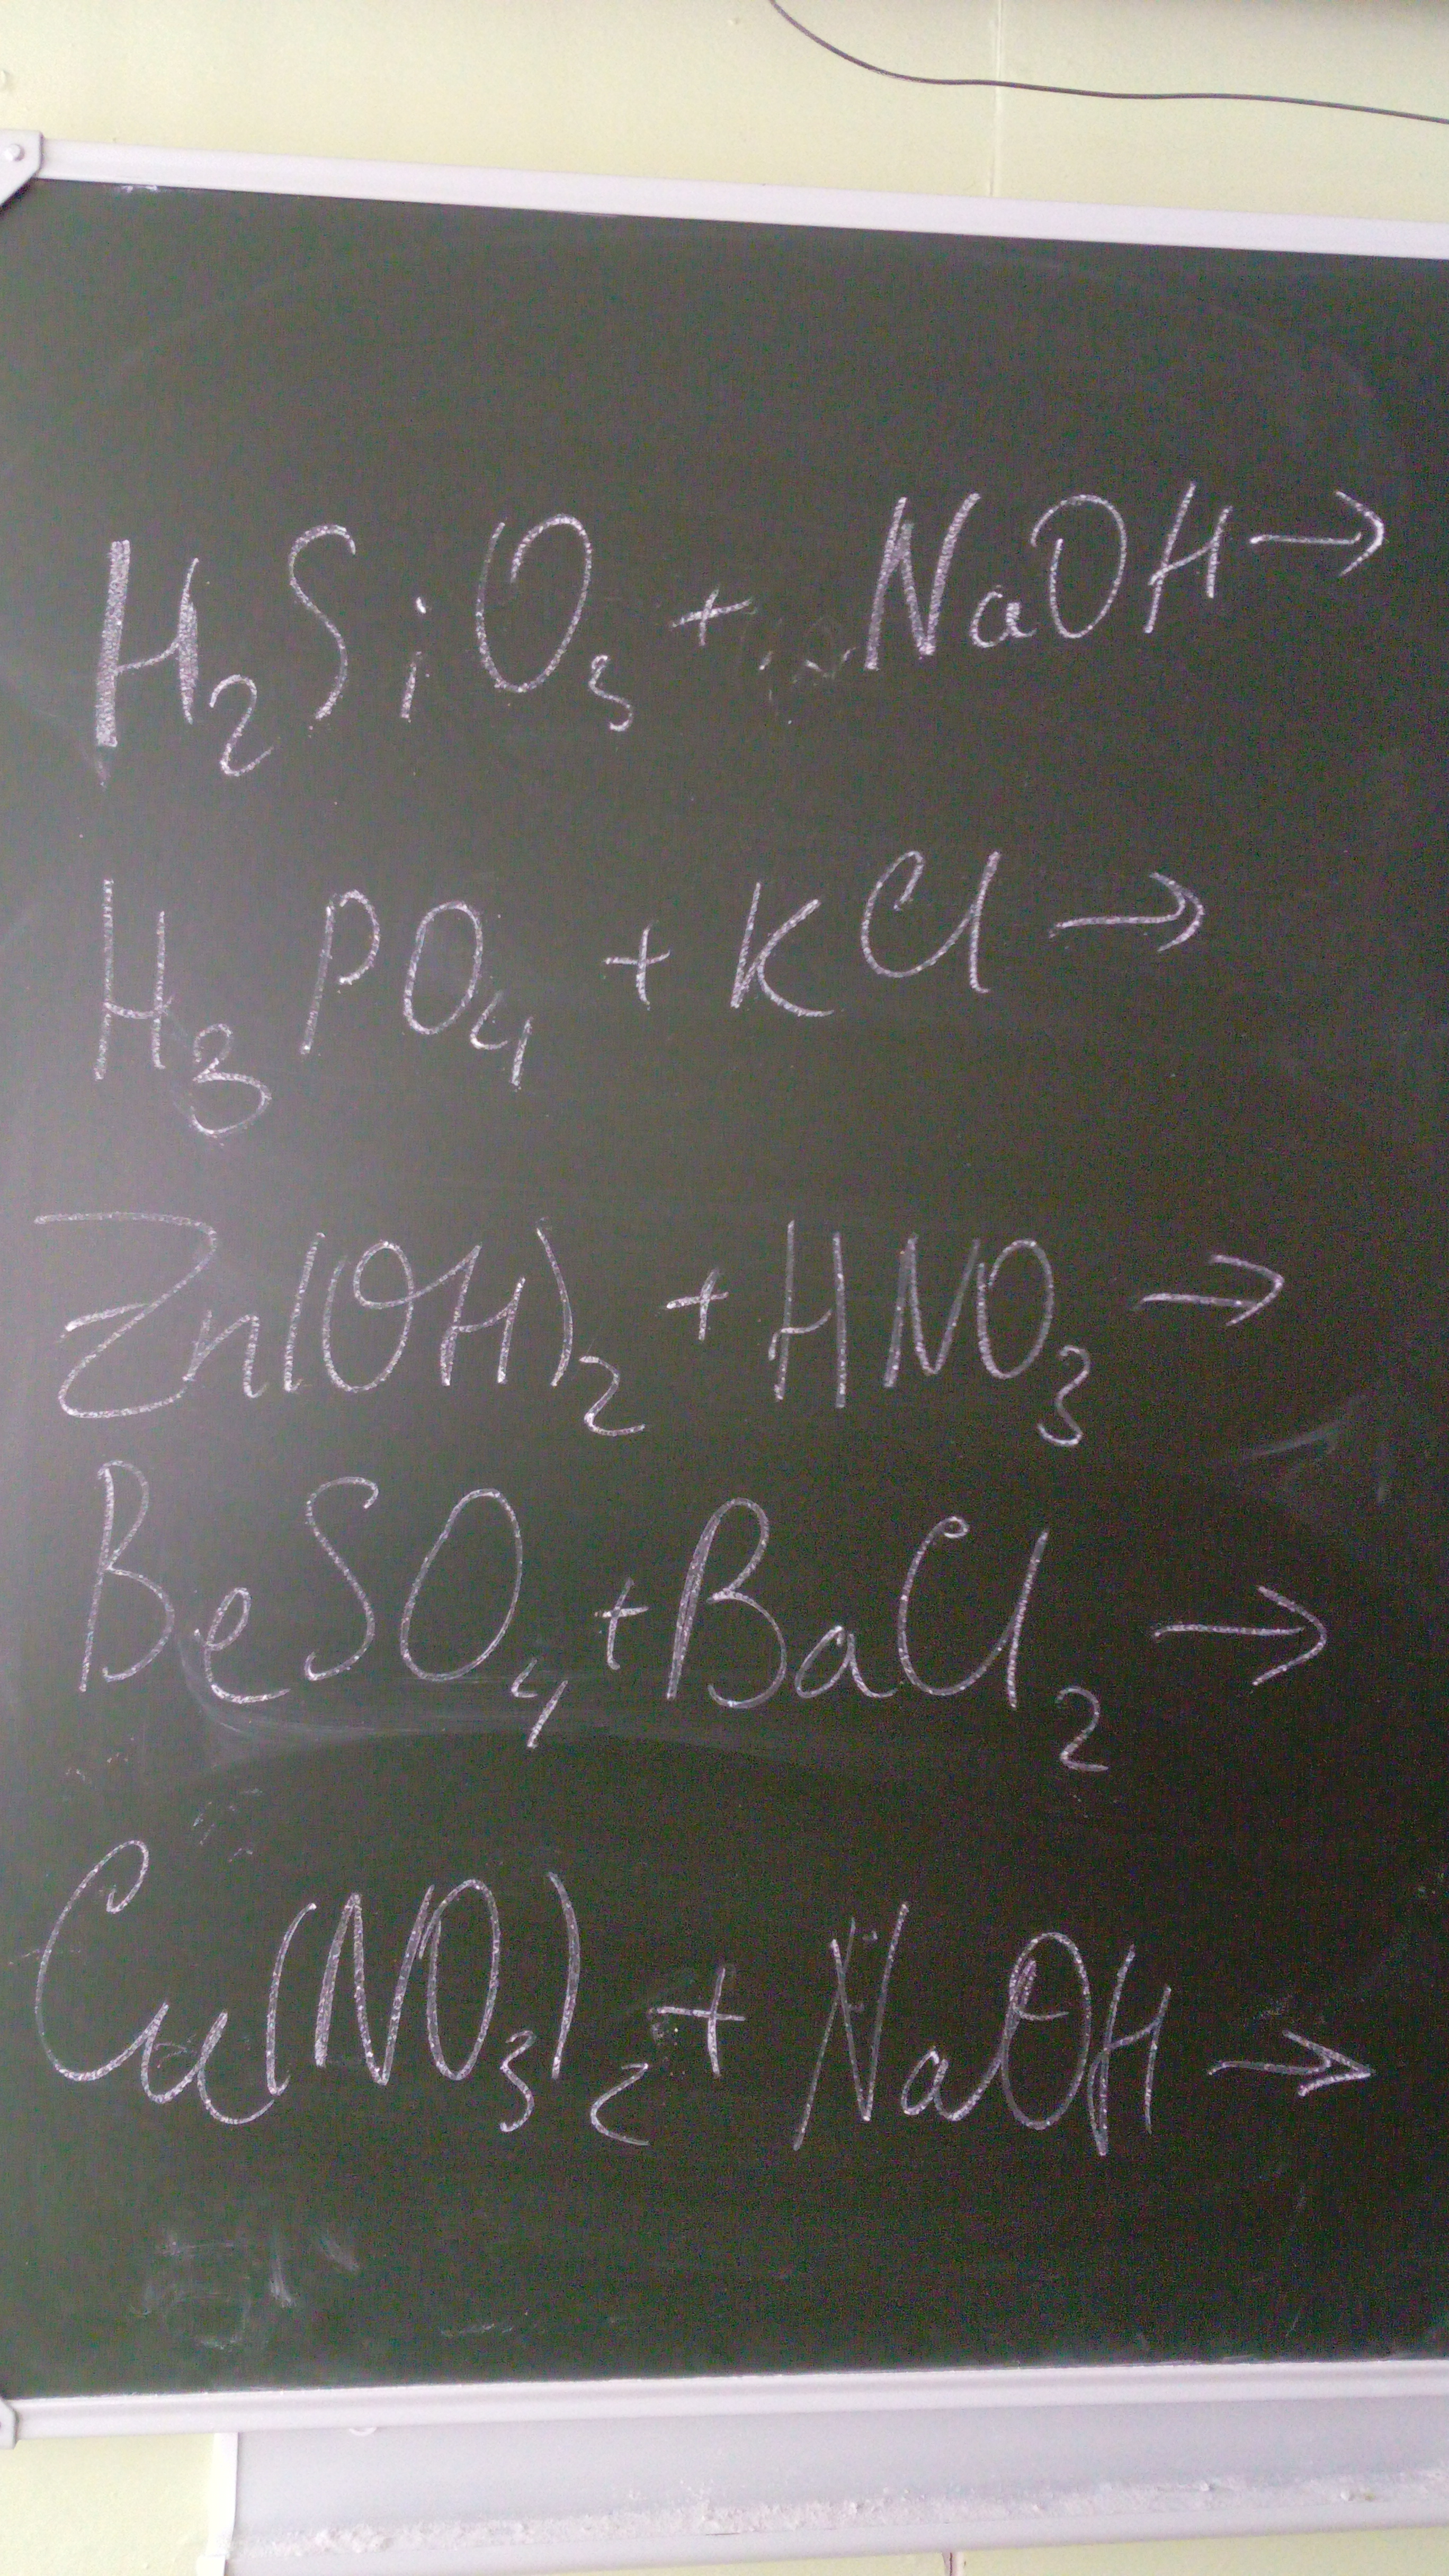 H₂SiO₃ + NaOH →
H₃PO₄ + KCl →
Zn(OH)₂ + HNO₃ →
BeSO₄ + BaCl₂ →
Cu(NO₃)₂ + NaOH →